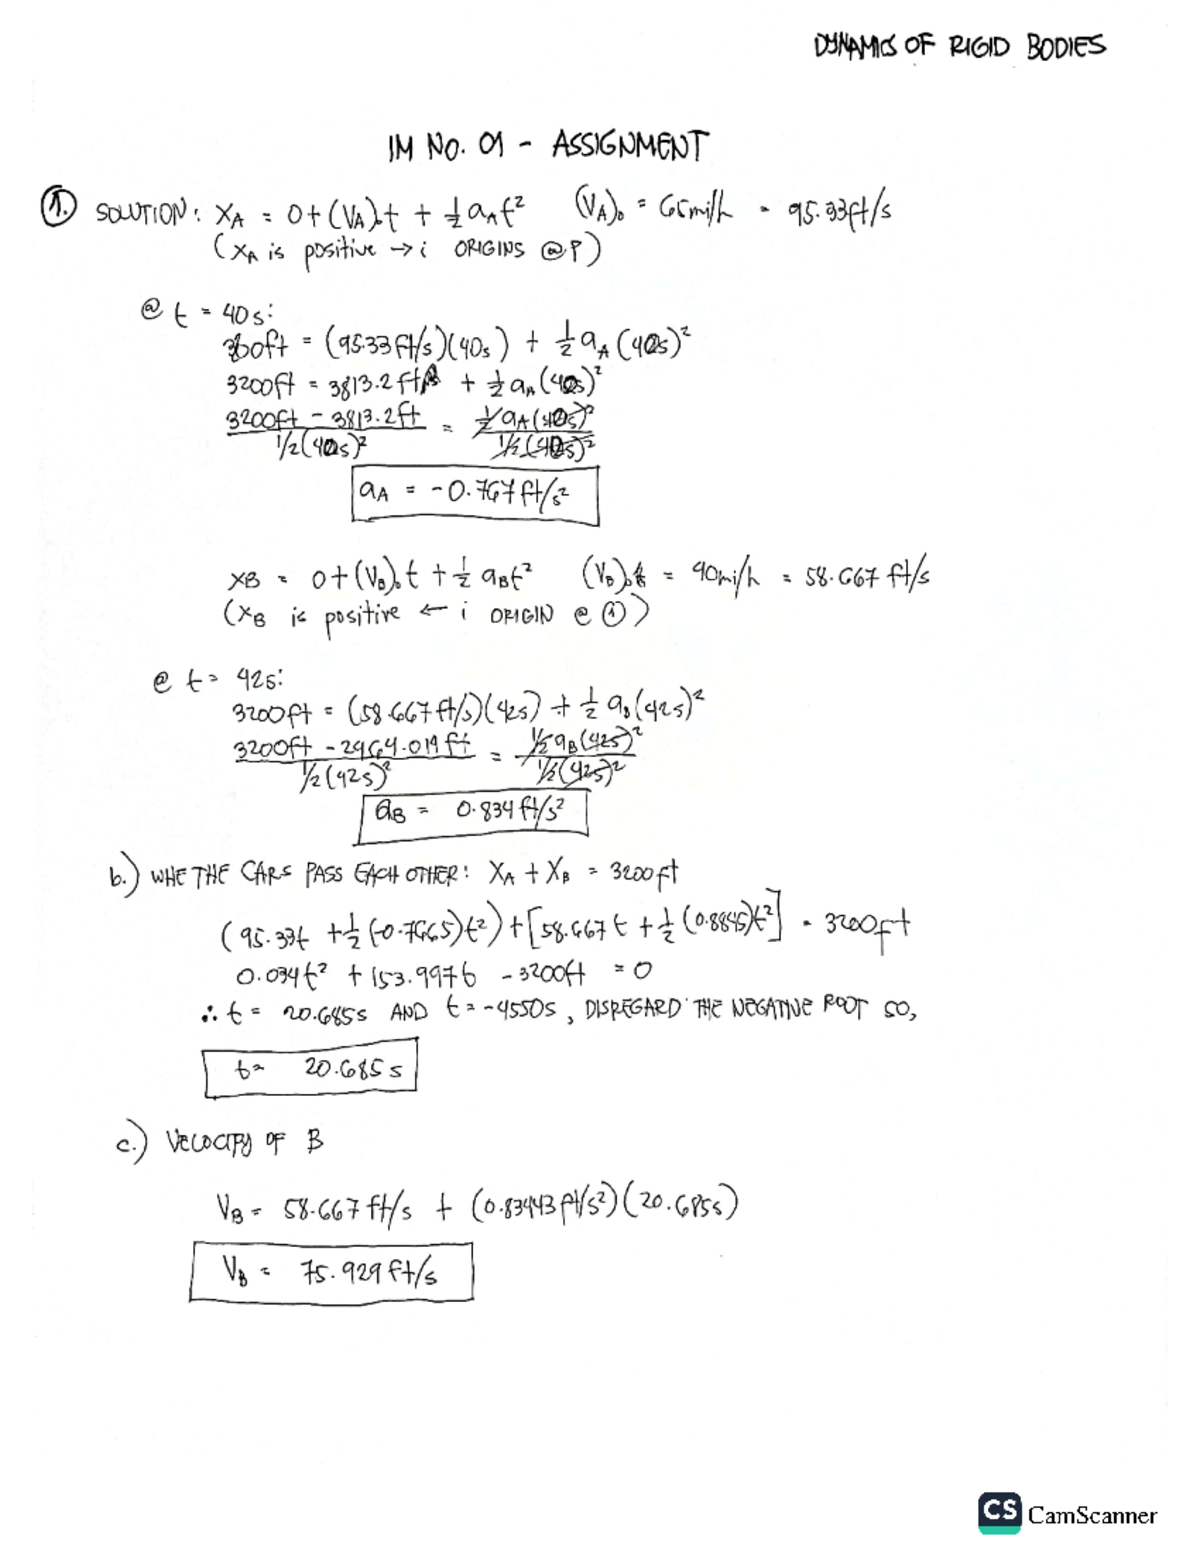 DYNAMICS OF RIGID BODIES
IM NO. 01 - ASSIGNMENT
1. SOLUTION: XA = 0 + (VA)₀t + ½aAt² (VA)₀ = 65mi/h = 95.33ft/s
(XA is positive → i ORIGINS @ P)
@ t = 40s:
3200ft = (95.33ft/s)(40s) + ½aA(40s)²
3200ft = 3813.2ft + ½aA(40s)²
3200ft - 3813.2ft / ½(40s)² = ½aA(40s)² / ½(40s)²
aA = -0.767ft/s²
XB = 0 + (VB)₀t + ½aBt² (VB)₀ = 40mi/h = 58.667 ft/s
(XB is positive ← i ORIGIN @ ①)
@ t = 42s:
3200ft = (58.667ft/s)(42s) + ½aB(42s)²
3200ft - 2464.014ft / ½(42s)² = ½aB(42s)² / ½(42s)²
aB = 0.834ft/s²
b.) WHE THE CARS PASS EACH OTHER: XA + XB = 3200ft
(95.33t + ½(-0.7665)t²) + [58.667t + ½(0.8845)t²] = 3200ft
0.034t² + 153.997t - 3200ft = 0
∴ t = 20.685s AND t = -4550s, DISREGARD THE NEGATIVE ROOT SO,
t = 20.685s
c.) VELOCITY OF B
VB = 58.667ft/s + (0.83443ft/s²)(20.685s)
VB = 75.929ft/s
CS CamScanner